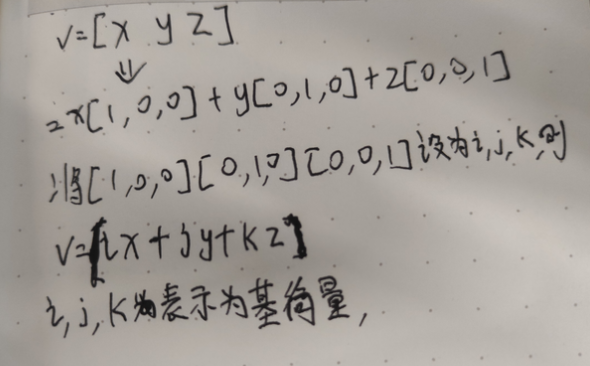 v=[x y z]
⇓
=x[1,0,0]+y[0,1,0]+z[0,0,1]
将[1,0,0][0,1,0][0,0,1]设为i,j,k,则
v=[ix+jy+kz]
i,j,k为表示为基向量,